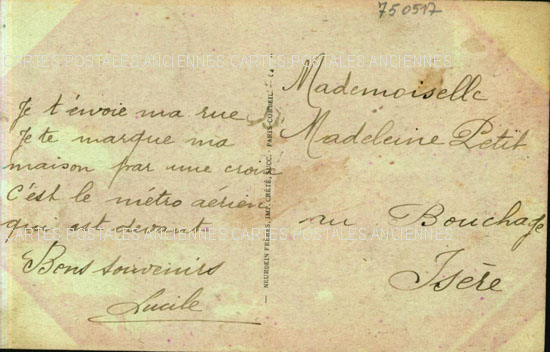 750517
CARTES POSTALES ANCIENNES CARTES POSTALES ANCIENNES
Je t'envoie ma rue
Je te marque ma
maison par une croix
C'est le métro aérien
qui est devant
Bons souvenirs
Lucile
NEURDEIN FRÈRES, IMP. CRÉTÉ, SUCC. PARIS-CORBEIL
Mademoiselle
Madeleine Petit
au Bouchage
Isère
CARTES POSTALES ANCIENNES CARTES POSTALES ANCIENNES